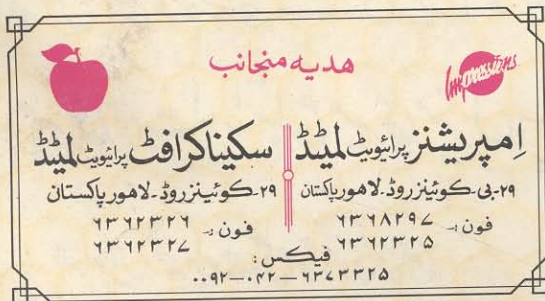 هدیه منجانب
Impressions
اِمپریشنز پرائیویٹ لمیٹڈ
۲۹-بی-کوئینز روڈ-لاهور پاکستان
فون :- ۶۳۶۸۲۹۷
۶۳۶۲۳۲۵
سکیناکرافٹ پرائیویٹ لمیٹڈ
۲۹-کوئینز روڈ-لاهور پاکستان
فون :- ۶۳۶۲۳۲۶
۶۳۶۲۳۲۷
فیکس :
۰۰۹۲-۰۴۲-۶۳۷۳۳۲۵